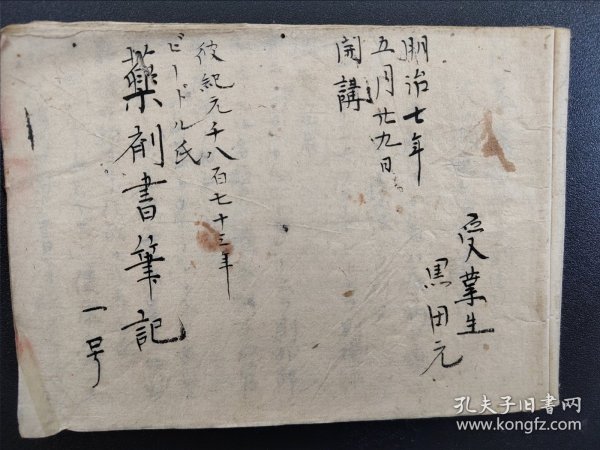 受業生
黒田元
明治七年
五月廿九日
開講
彼紀元千八百七十三年
ビードル氏
薬剤書筆記
一号
孔夫子旧书网
www.kongfz.com